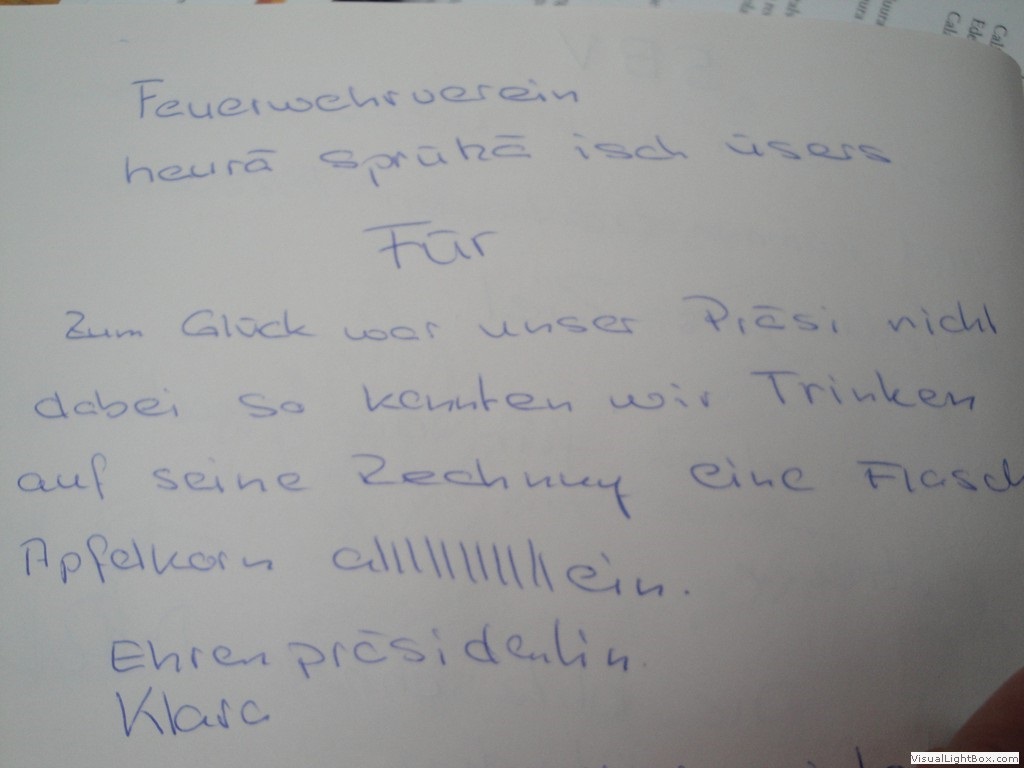 Feuerwehrverein
heurä sprützä isch üsers
Für
Zum Glück war unser Präsi nicht
dabei so konnten wir Trinken
auf seine Rechnung eine Flasch
Apfelkorn allllllllllein.
Ehrenpräsidentin.
Klara
VisualLightBox.com